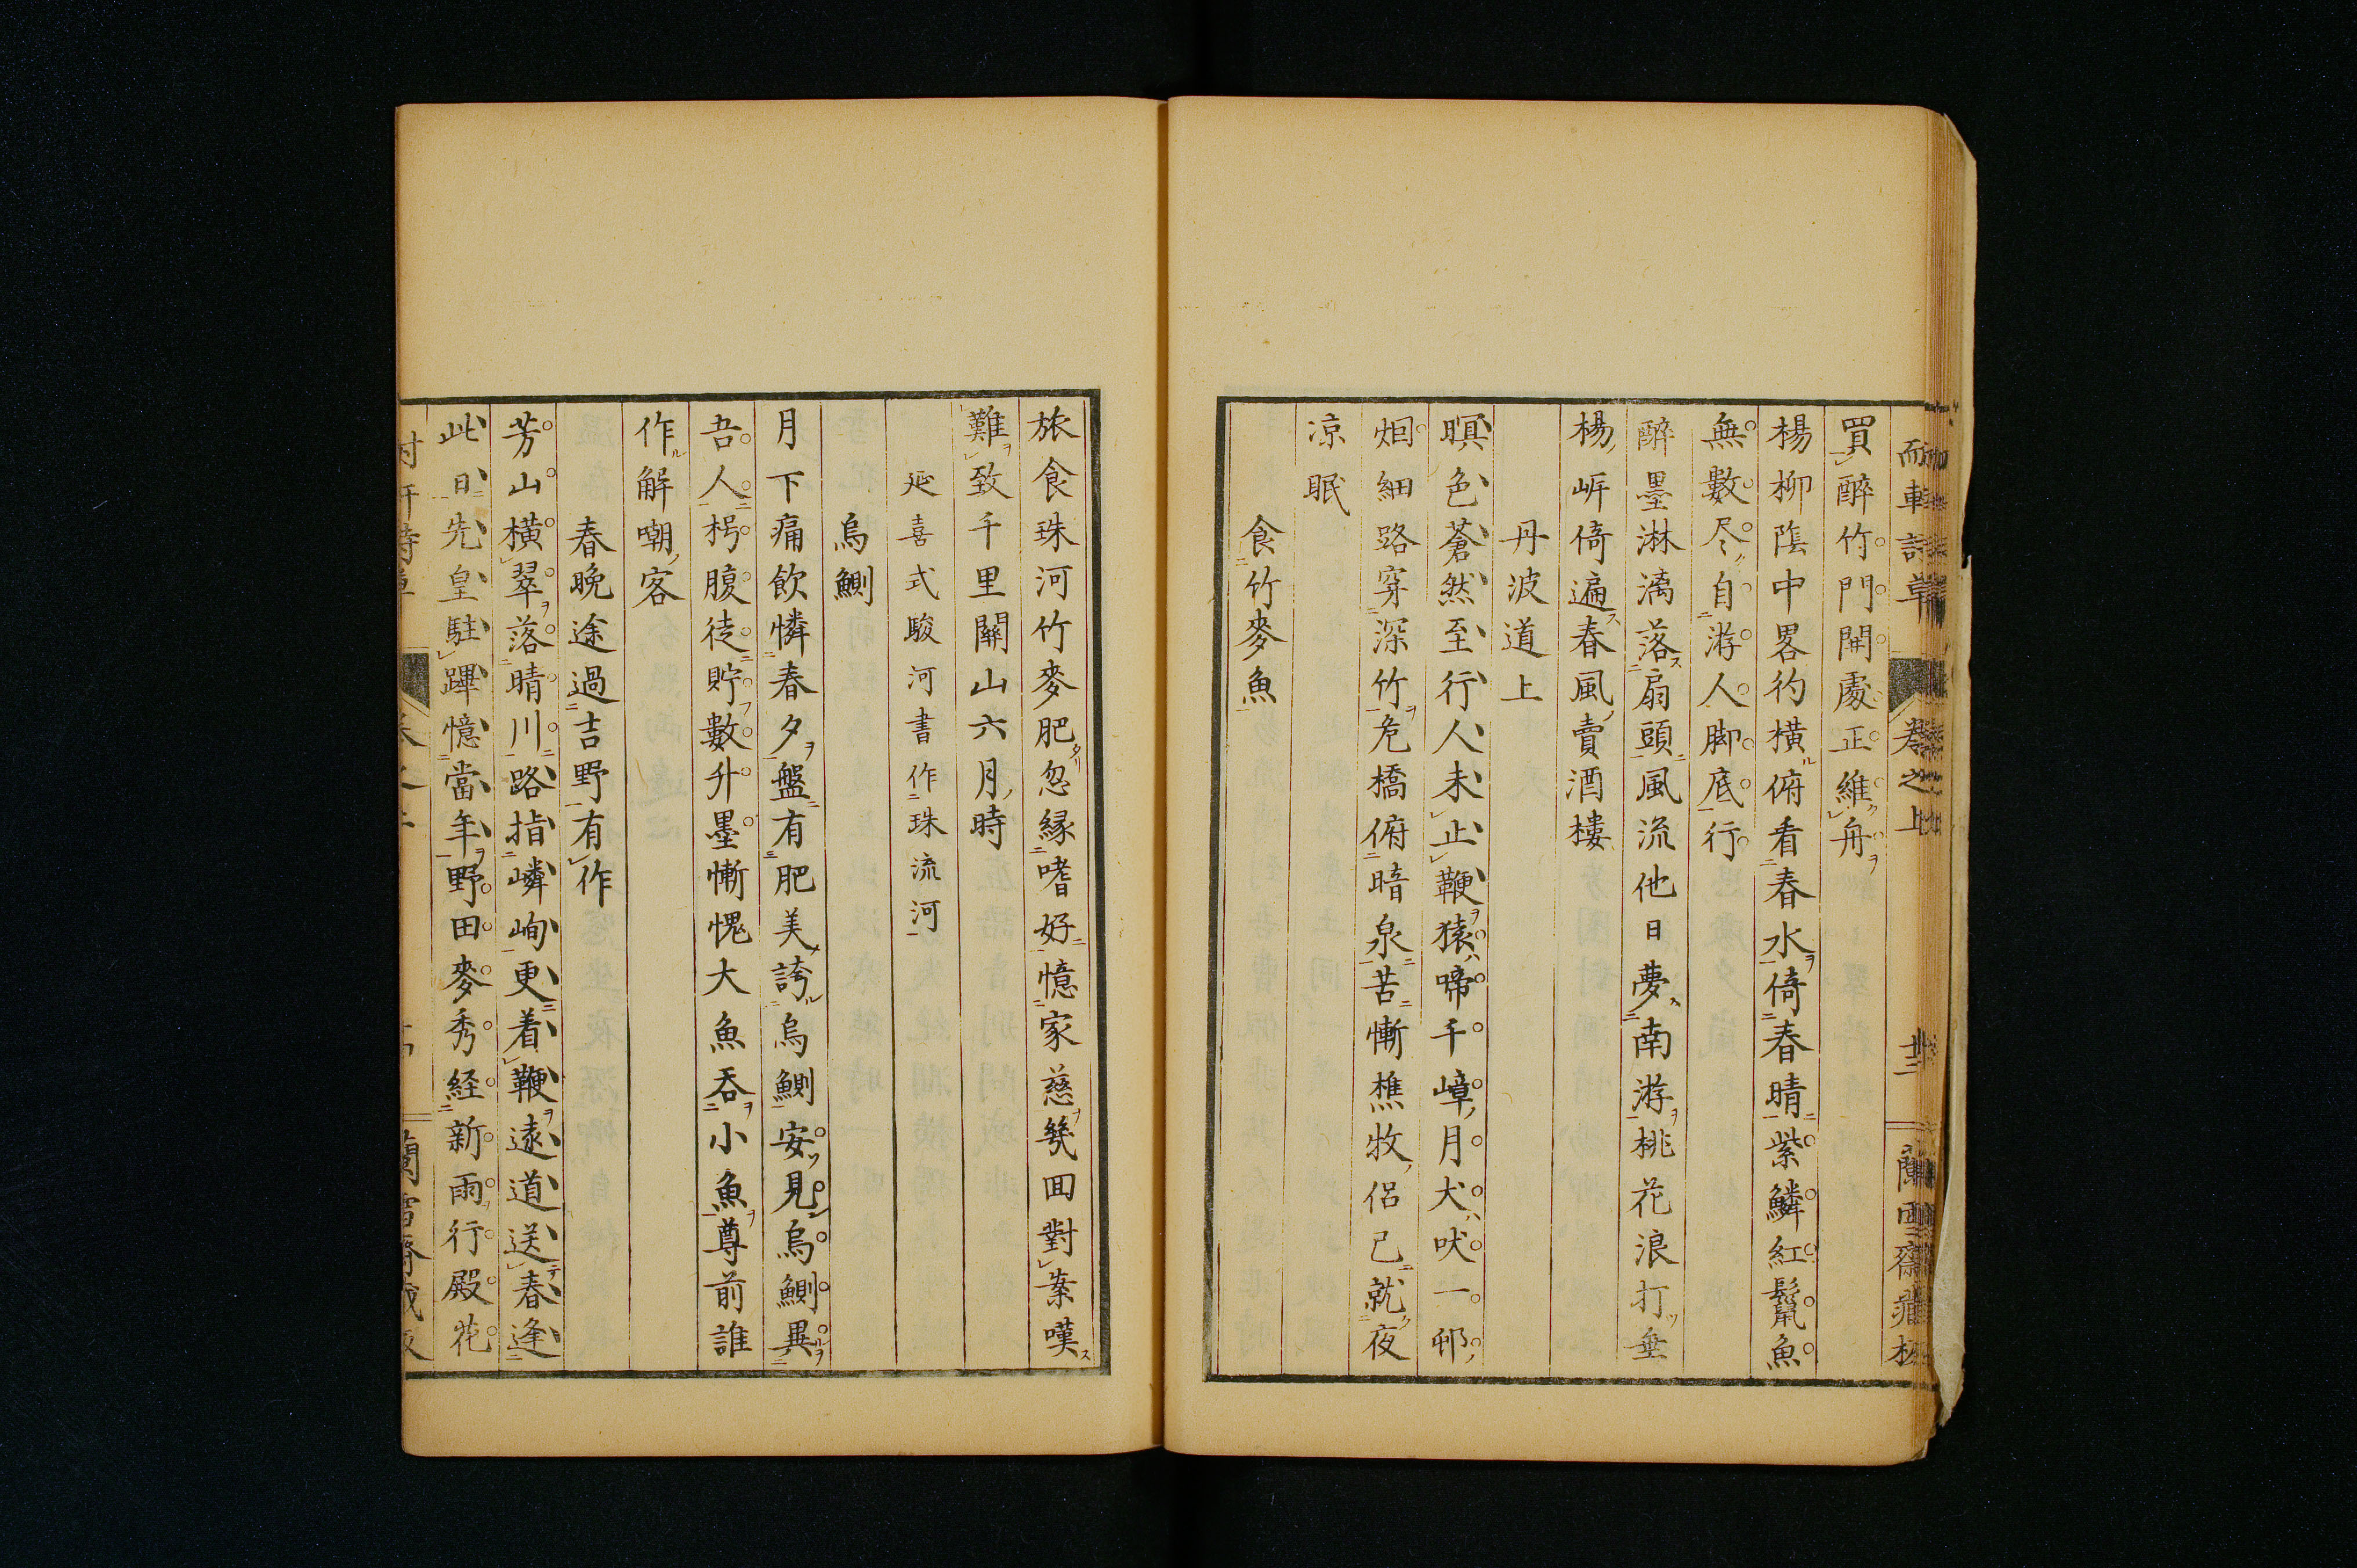 耐軒詩草 卷之上 廿二
買醉竹門開處正維舟
楊柳陰中畧彴橫俯看春水倚春晴紫鱗紅鬣魚
無數尽自游人脚底行
醉墨淋漓落扇頭風流他日夢南游桃花浪打垂
楊岸倚遍春風賣酒樓
丹波道上
暝色蒼然至行人未止鞭猿啼千嶂月犬吠一邨
烟細路穿深竹危橋俯暗泉苦慚樵牧侶已就夜
凉眠
食竹麥魚
旅食珠河竹麥肥忽緣嗜好憶家慈幾回對案嘆
難致千里關山六月時
延喜式駿河書作珠流河
烏鰂
月下痛飲憐春夕盤有肥美誇烏鰂安見烏鰂異
吾人枵腹徒貯數升墨慚愧大魚吞小魚尊前誰
作解嘲客
春晚途過吉野有作
芳山橫翠落晴川路指嶙峋更着鞭遠道送春逢
此日先皇駐蹕憶當年野田麥秀経新雨行殿花